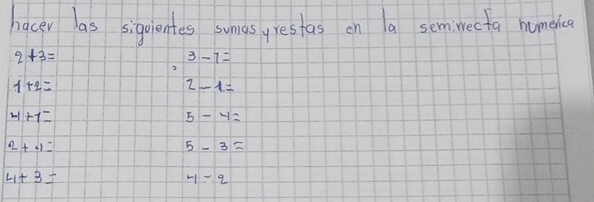 hacer las siguientes sumas y restas en la semirrecta numerica
2+3= 3-1=
1+2= 2-1=
4+1= 5-4=
2+4= 5-3=
4+3= 4-2